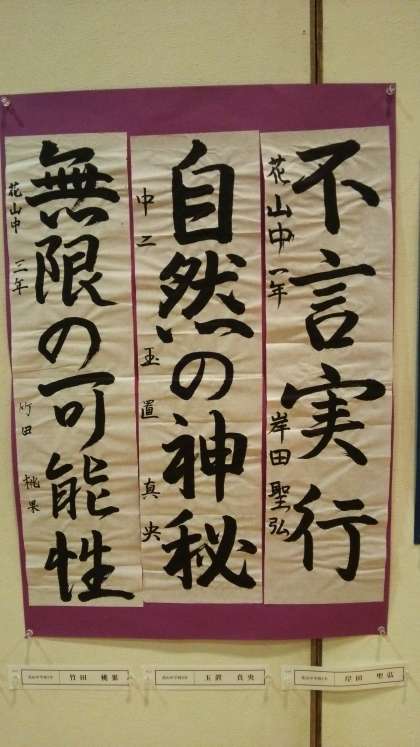 不言実行
花山中一年 岸田聖弘
自然の神秘
中二 玉置真央
無限の可能性
花山中 三年 竹田 桃果
岸田 聖弘
玉置 真央
竹田 桃果